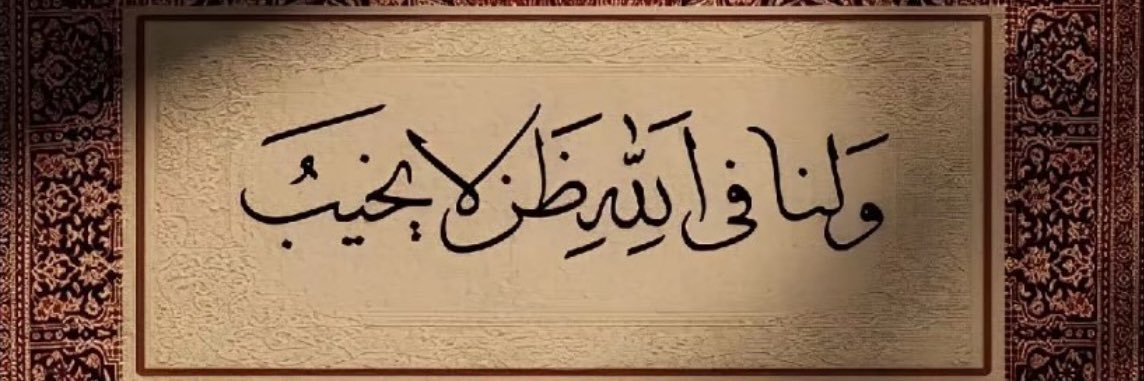 وَلنا في اَللّٰهِ ظَن لا يخيبُ